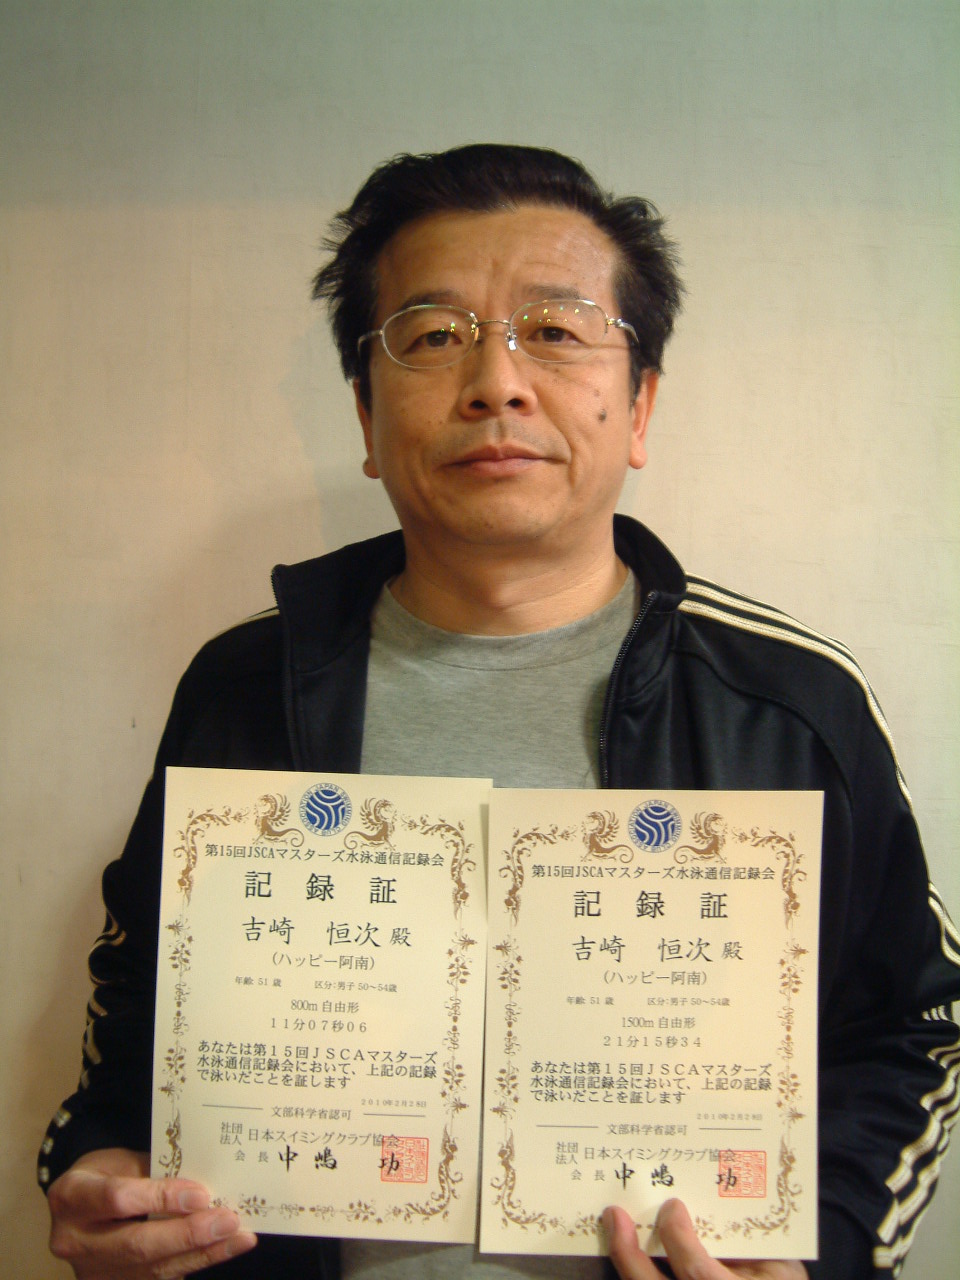 第15回JSCAマスターズ水泳通信記録会
記録証
吉崎 恒次 殿
（ハッピー阿南）
年齢: 51 歳 区分: 男子 50～54歳
800m 自由形
11分07秒06
あなたは第15回JSCAマスターズ
水泳通信記録会において、上記の記録
で泳いだことを証します
2010年2月28日
文部科学省認可
社団法人 日本スイミングクラブ協会
会長 中嶋 功
第15回JSCAマスターズ水泳通信記録会
記録証
吉崎 恒次 殿
（ハッピー阿南）
年齢: 51 歳 区分: 男子 50～54歳
1500m 自由形
21分15秒34
あなたは第15回JSCAマスターズ
水泳通信記録会において、上記の記録
で泳いだことを証します
2010年2月28日
文部科学省認可
社団法人 日本スイミングクラブ協会
会長 中嶋 功